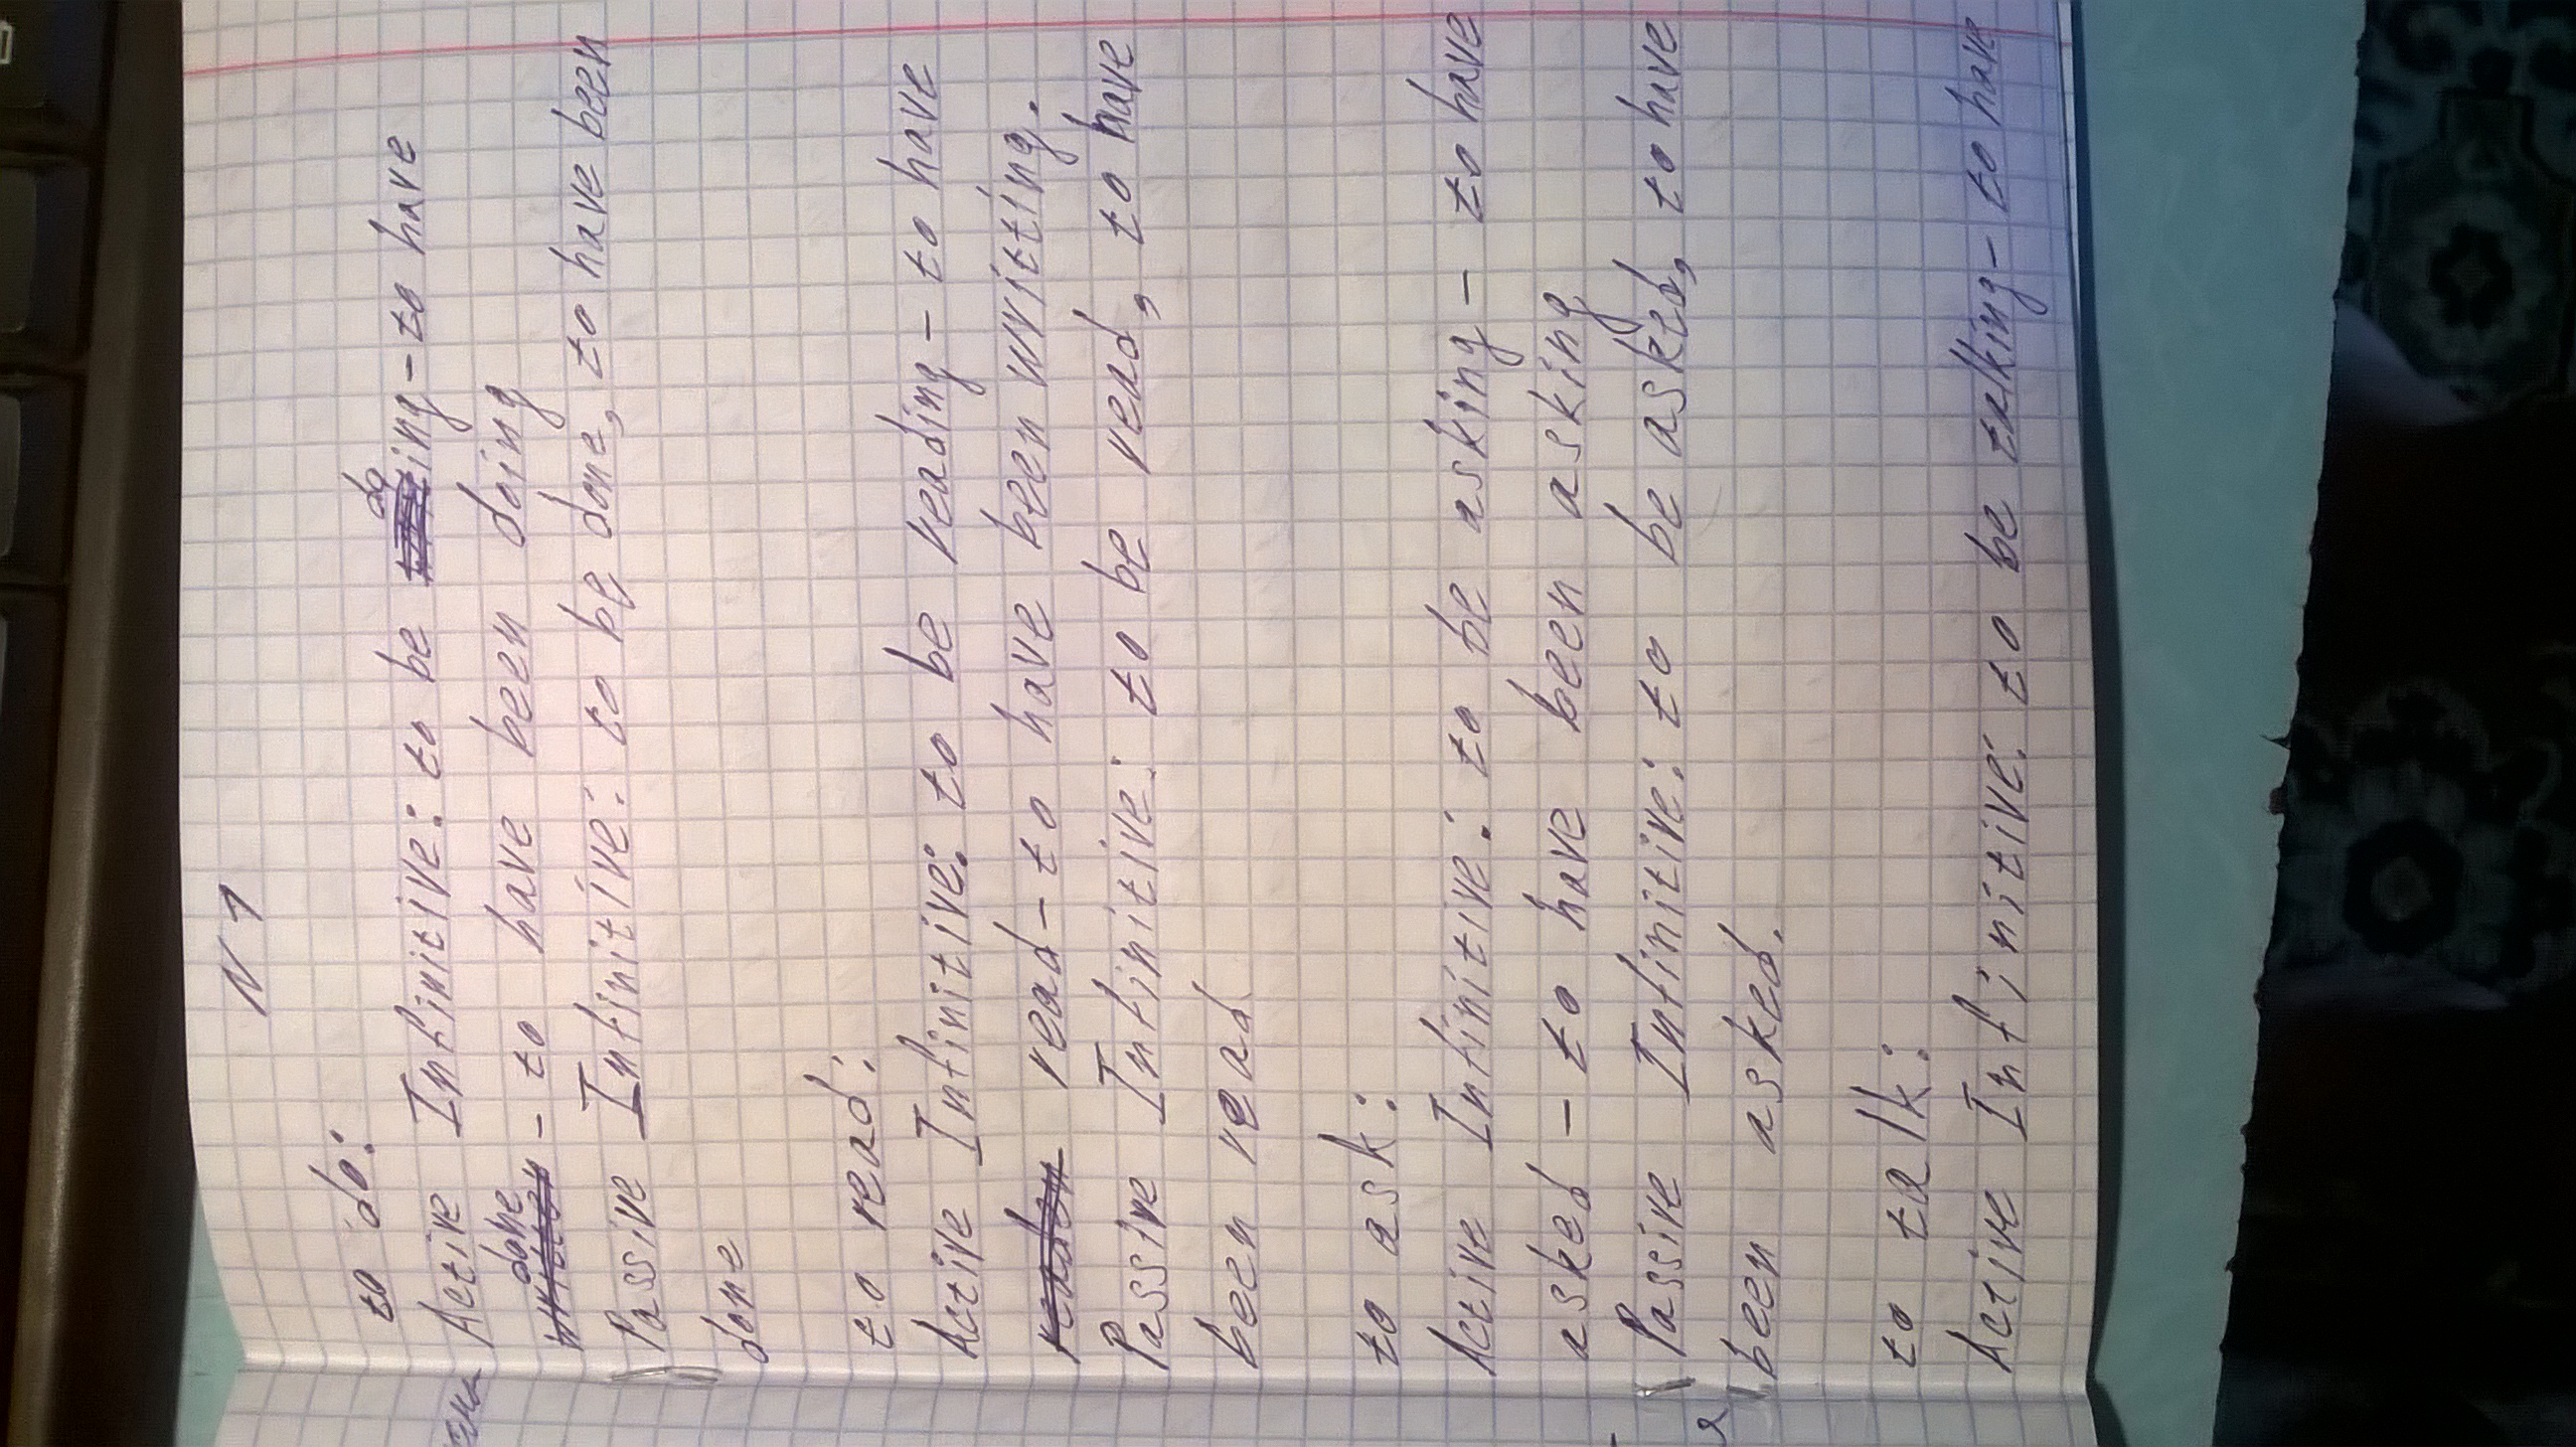 N 1
to do:
Active Infinitive: to be doing - to have
done - to have been doing
Passive Infinitive: to be done, to have been
done
to read:
Active Infinitive: to be reading - to have
read - to have been writting.
Passive Infinitive: to be read, to have
been read
to ask:
Active Infinitive: to be asking - to have
asked - to have been asking
Passive Infinitive: to be asked, to have
been asked.
to talk:
Active Infinitive: to be talking - to have